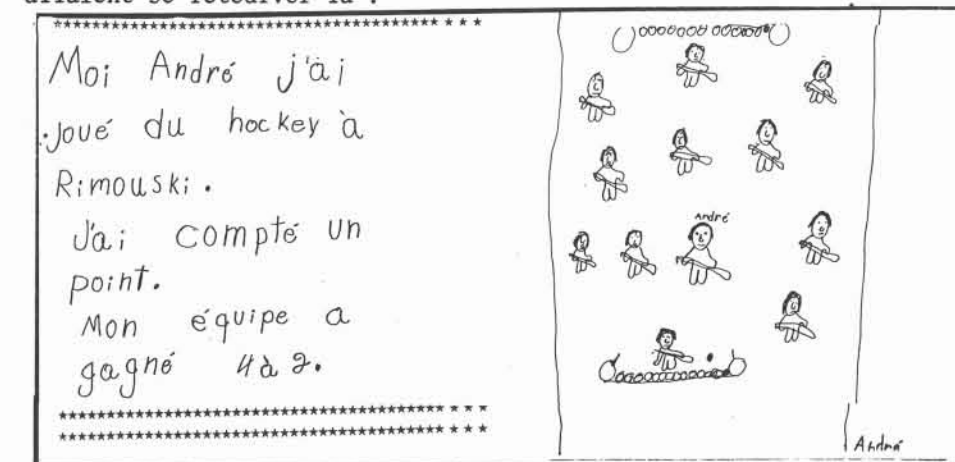 Moi André j'ai
joué du hockey à
Rimouski.
J'ai compté un
point.
Mon équipe a
gagné 4 à 2.
André
André